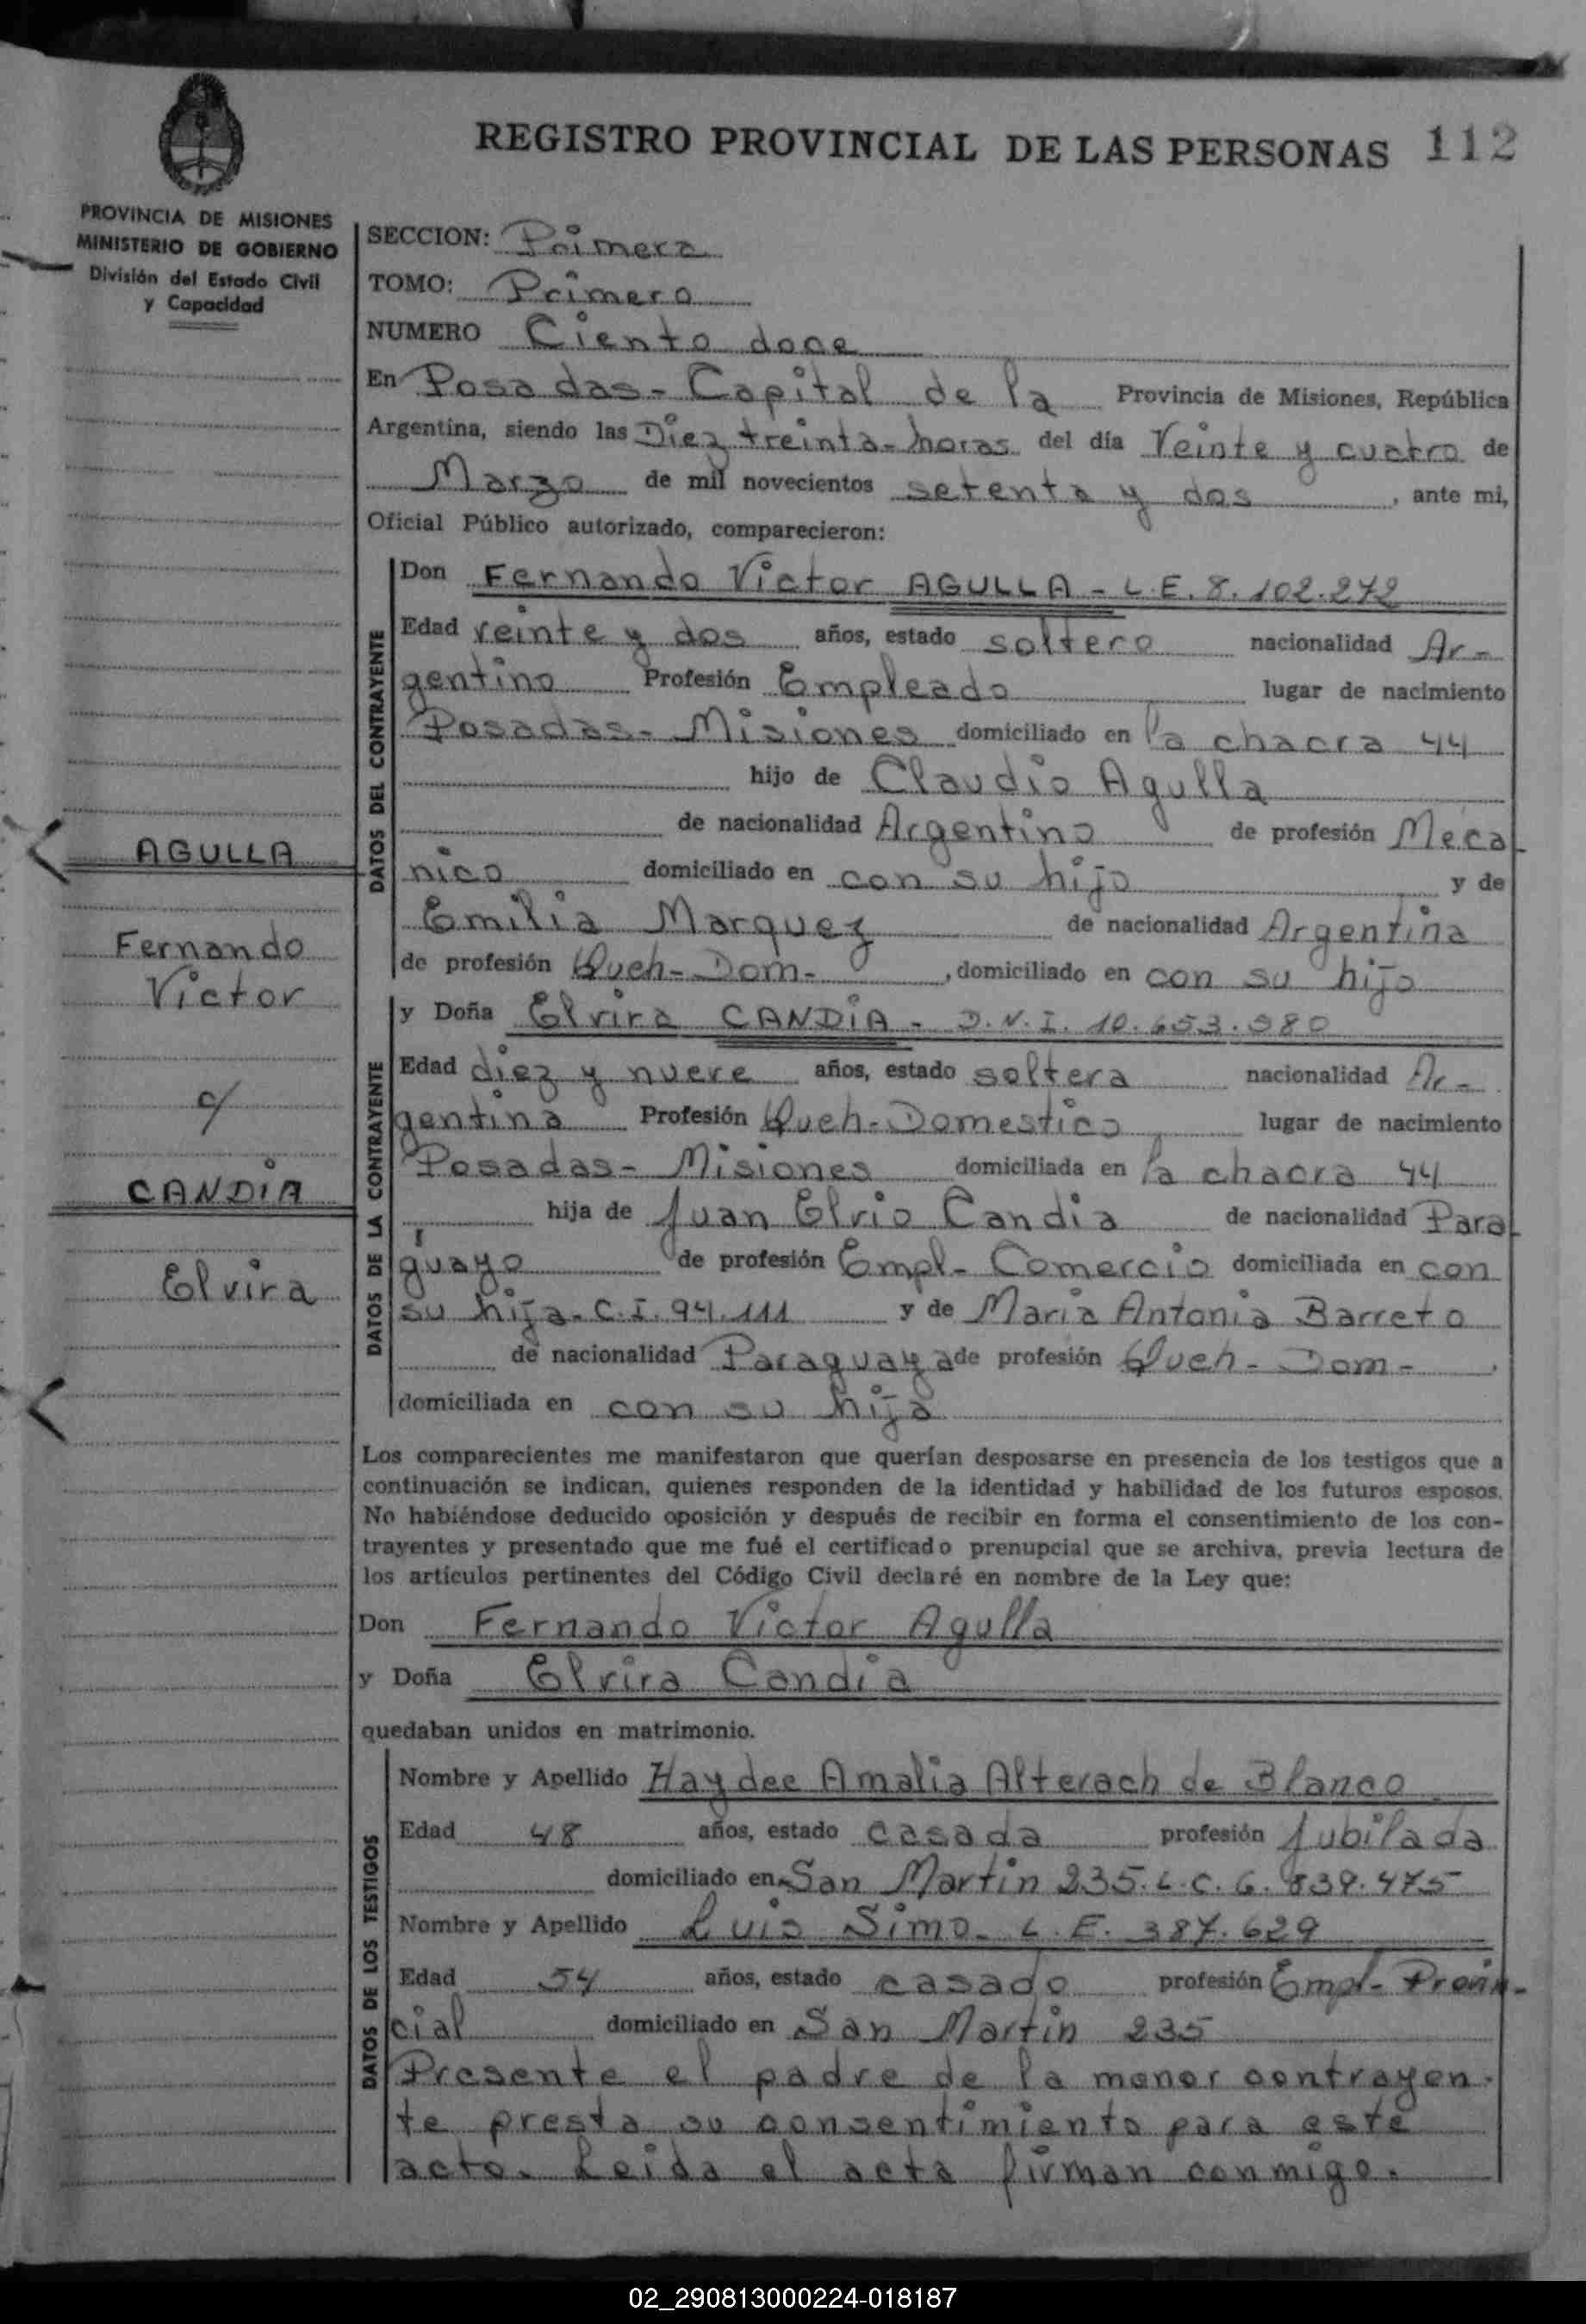 REGISTRO PROVINCIAL DE LAS PERSONAS 112
PROVINCIA DE MISIONES
MINISTERIO DE GOBIERNO
División del Estado Civil
y Capacidad
SECCION: Primera
TOMO: Primero
NUMERO Ciento doce
En Posadas - Capital de la Provincia de Misiones, República
Argentina, siendo las Diez treinta - horas del día Veinte y cuatro de
Marzo de mil novecientos setenta y dos, ante mi,
Oficial Público autorizado, comparecieron:
DATOS DEL CONTRAYENTE
Don Fernando Victor AGULLA - L.E. 8.102.272
Edad veinte y dos años, estado soltero nacionalidad Ar-
gentino Profesión Empleado lugar de nacimiento
Posadas - Misiones domiciliado en la chacra 44
hijo de Claudio Agulla
de nacionalidad Argentino de profesión Meca-
nico domiciliado en con su hijo y de
Emilia Marquez de nacionalidad Argentina
de profesión Queh - Dom -, domiciliado en con su hijo
AGULLA
Fernando
Victor
c/
CANDIA
Elvira
DATOS DE LA CONTRAYENTE
y Doña Elvira CANDIA - D.N.I. 10.653.980
Edad diez y nueve años, estado soltera nacionalidad Ar-
gentina Profesión Queh - Domestico lugar de nacimiento
Posadas - Misiones domiciliada en la chacra 44
hija de Juan Elvio Candia de nacionalidad Para-
guayo de profesión Empl - Comercio domiciliada en con
su hija - C.I. 94.111 y de Maria Antonia Barreto
de nacionalidad Paraguaya de profesión Queh - Dom -
domiciliada en con su hija
Los comparecientes me manifestaron que querían desposarse en presencia de los testigos que a
continuación se indican, quienes responden de la identidad y habilidad de los futuros esposos.
No habiéndose deducido oposición y después de recibir en forma el consentimiento de los con-
trayentes y presentado que me fué el certificado prenupcial que se archiva, previa lectura de
los artículos pertinentes del Código Civil declaré en nombre de la Ley que:
Don Fernando Victor Agulla
y Doña Elvira Candia
quedaban unidos en matrimonio.
DATOS DE LOS TESTIGOS
Nombre y Apellido Haydee Amalia Alterach de Blanco
Edad 48 años, estado casada profesión Jubilada
domiciliado en San Martin 235. L.C. 6.839.475
Nombre y Apellido Luis Simo - L.E. 387.629
Edad 54 años, estado casado profesión Empl - Provin-
cial domiciliado en San Martin 235
Presente el padre de la menor contrayen-
te presta su consentimiento para este
acto. Leida el acta firman conmigo.
02_290813000224-018187